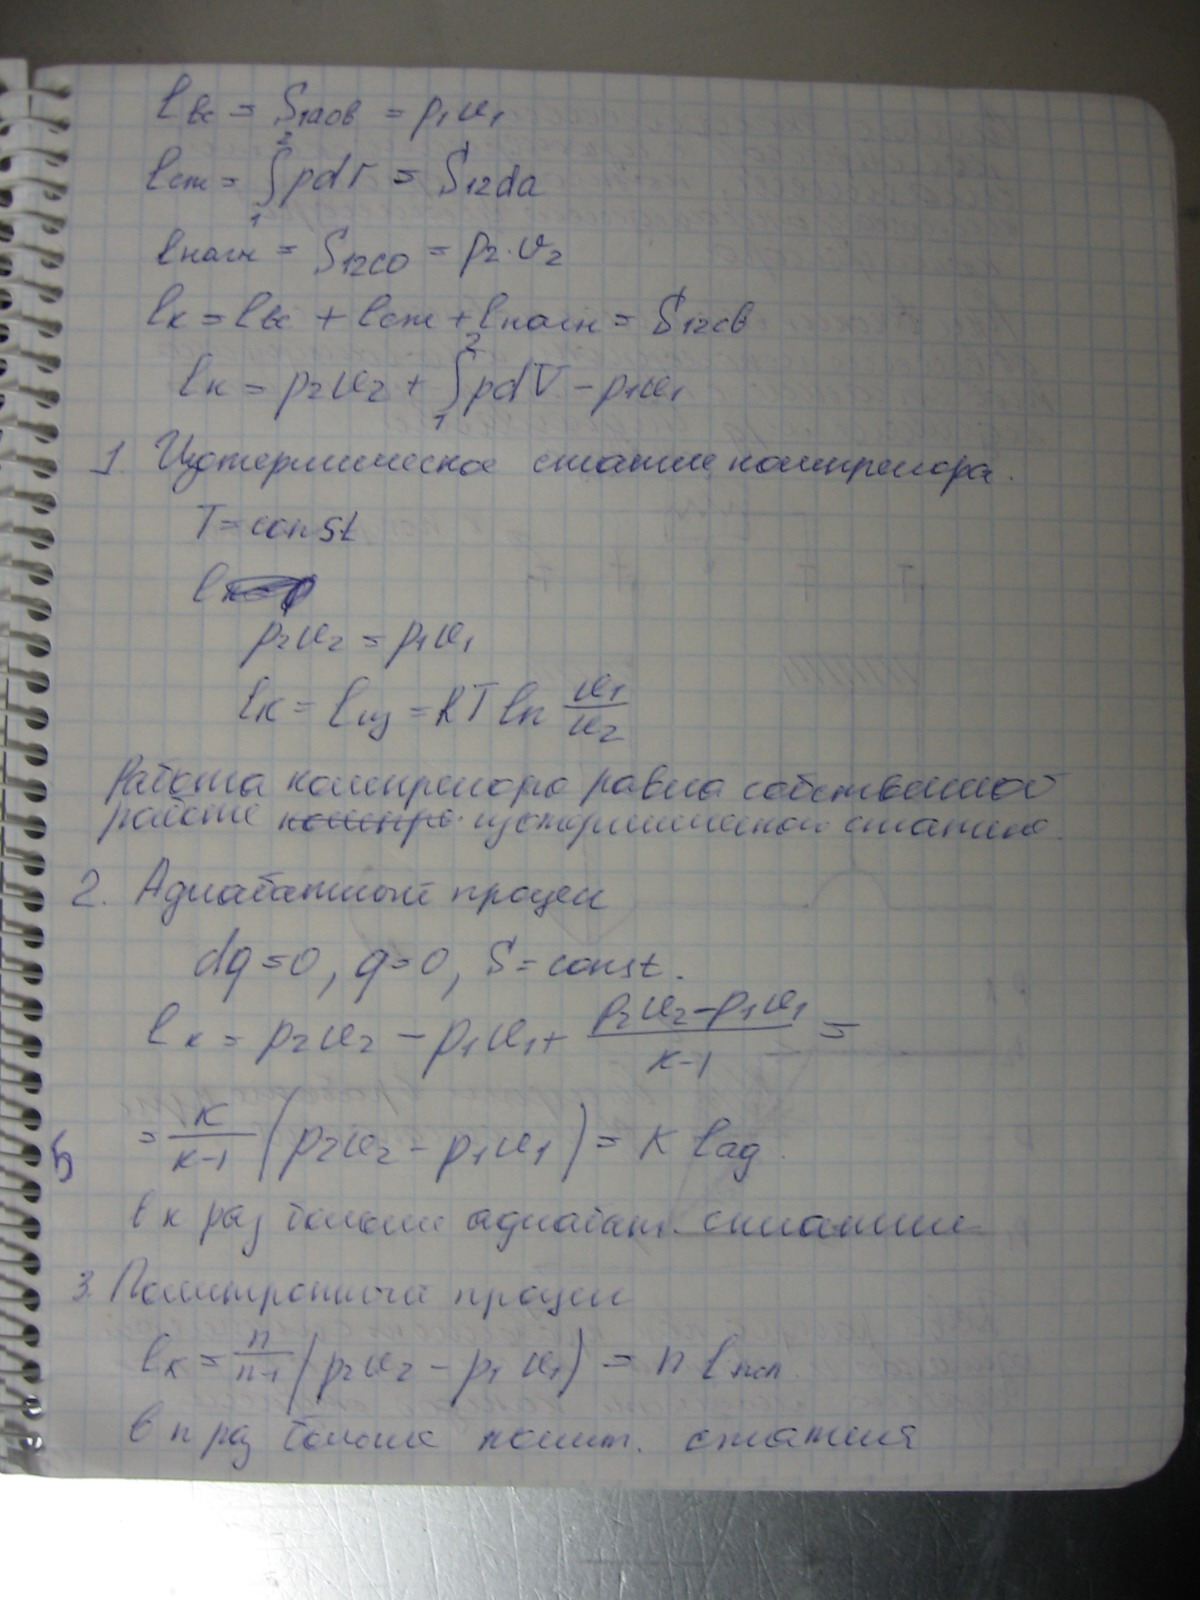 lвс = S1аов = p₁v₁
lсж = ∫₁² pdV = S12da
lнагн = S12co = p₂·v₂
lк = lвс + lсж + lнагн = S12cв
lк = p₂v₂ + ∫₁² pdV − p₁v₁
1. Изотермическое сжатие компрессора.
T = const
l
p₂v₂ = p₁v₁
lк = lиз = RT ln v₁/v₂
Работа компрессора равна собственной
работе компре изотермической сжатию.
2. Адиабатный процесс
dq=0, q=0, S=const.
lк = p₂v₂ − p₁v₁ + (p₂v₂−p₁v₁)/(к−1) =
= к/(к−1) (p₂v₂ − p₁v₁) = к lад.
в к раз больше адиабат. сжатия
3. Политропный процесс
lк = n/(n−1) (p₂v₂ − p₁v₁) = n lпол.
в n раз больше полит. сжатия